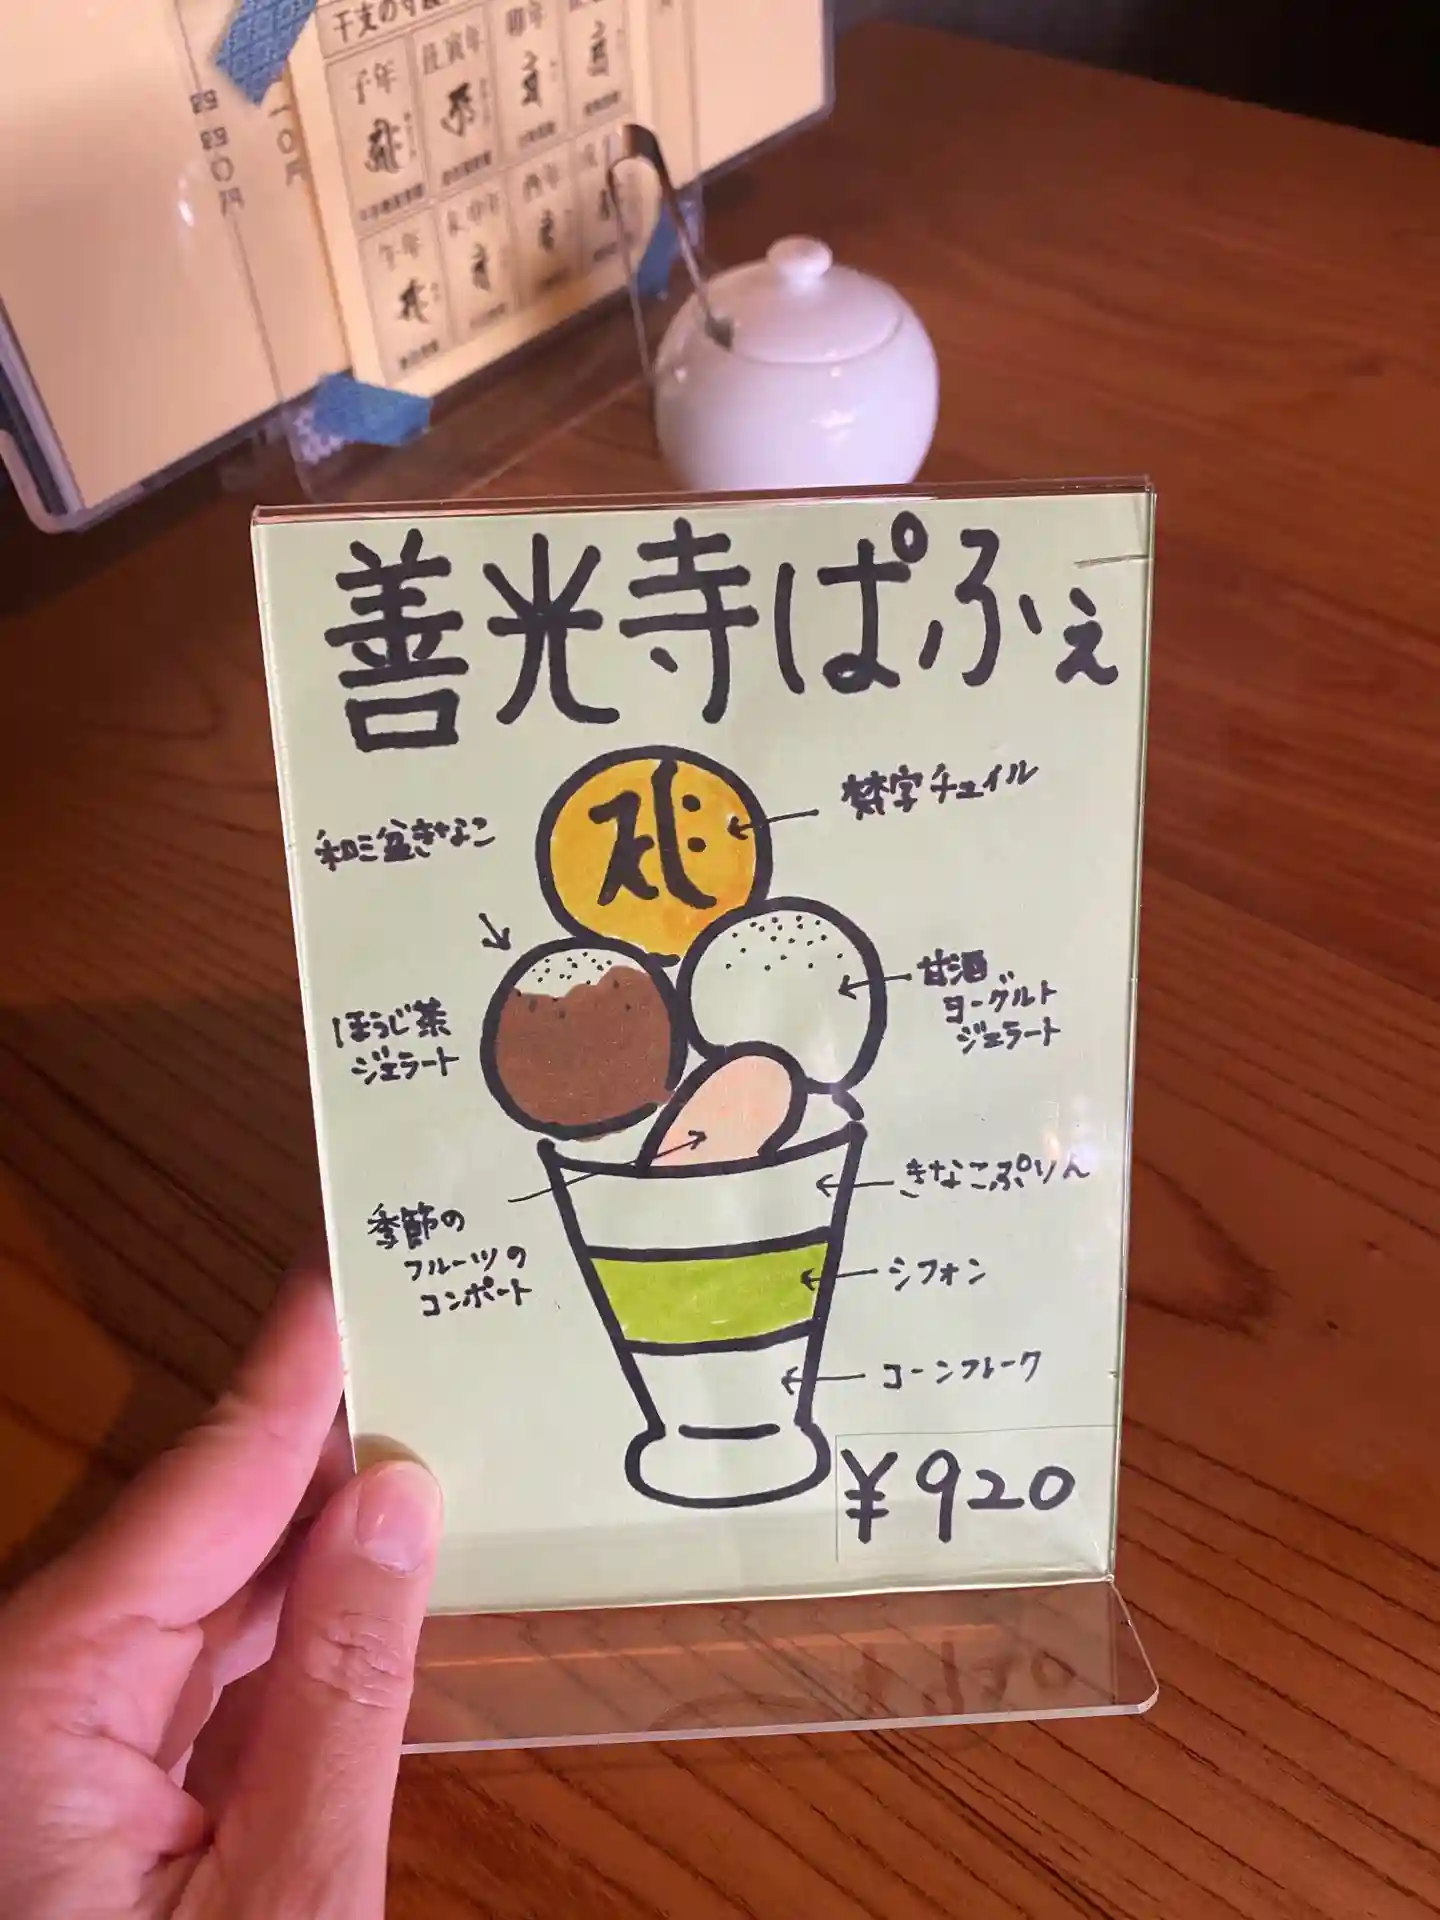 干支の守
子年
丑寅年
卯年
午年
未申年
酉年
善光寺ぱふぇ
梵字チュイル
和三盆きなこ
甘酒
ヨーグルト
ジェラート
ほうじ茶
ジェラート
きなこぷりん
季節の
フルーツの
コンポート
シフォン
コーンフレーク
¥920